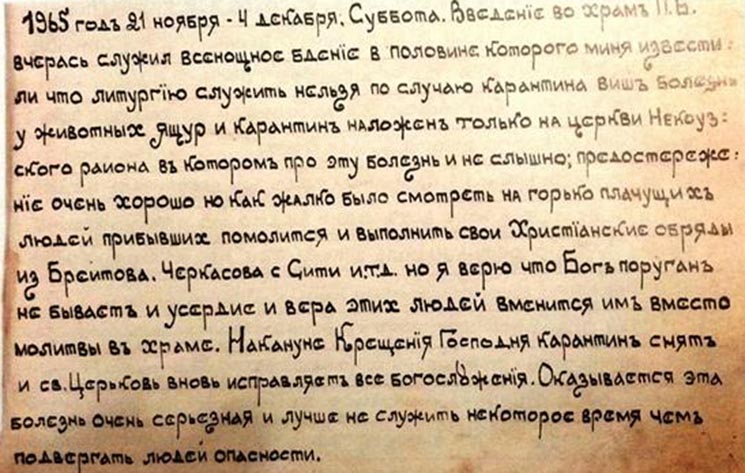 1965 годъ 21 ноября - 4 декабря. Суббота. Введенiе во храмъ П.Б.
вчерась служил всенощное бденiе в половине которого миня извести:
ли что литургiю служить нельзя по случаю карантина вишъ болезнь
у животных ящур и карантинъ наложенъ только на церкви Некоуз:
ского раиона въ которомъ про эту болезнь и не слышно; предостереже:
нiе очень хорошо но как жалко было смотреть на горько плачущихъ
людей прибывших помолится и выполнить свои Христiанские обряды
из Брейтова. Черкасова с Сити и.т.д. но я верю что Богъ поруганъ
не бываетъ и усердие и вера этих людей вменится имъ вместо
молитвы въ храме. Накануне Крещенiя Господня карантинъ снятъ
и св. Церьковь вновь исправляетъ все богослужженiя. Оказывается эта
болезнь очень серьезная и лучше не служить некоторое время чемъ
подвергать людей опасности.